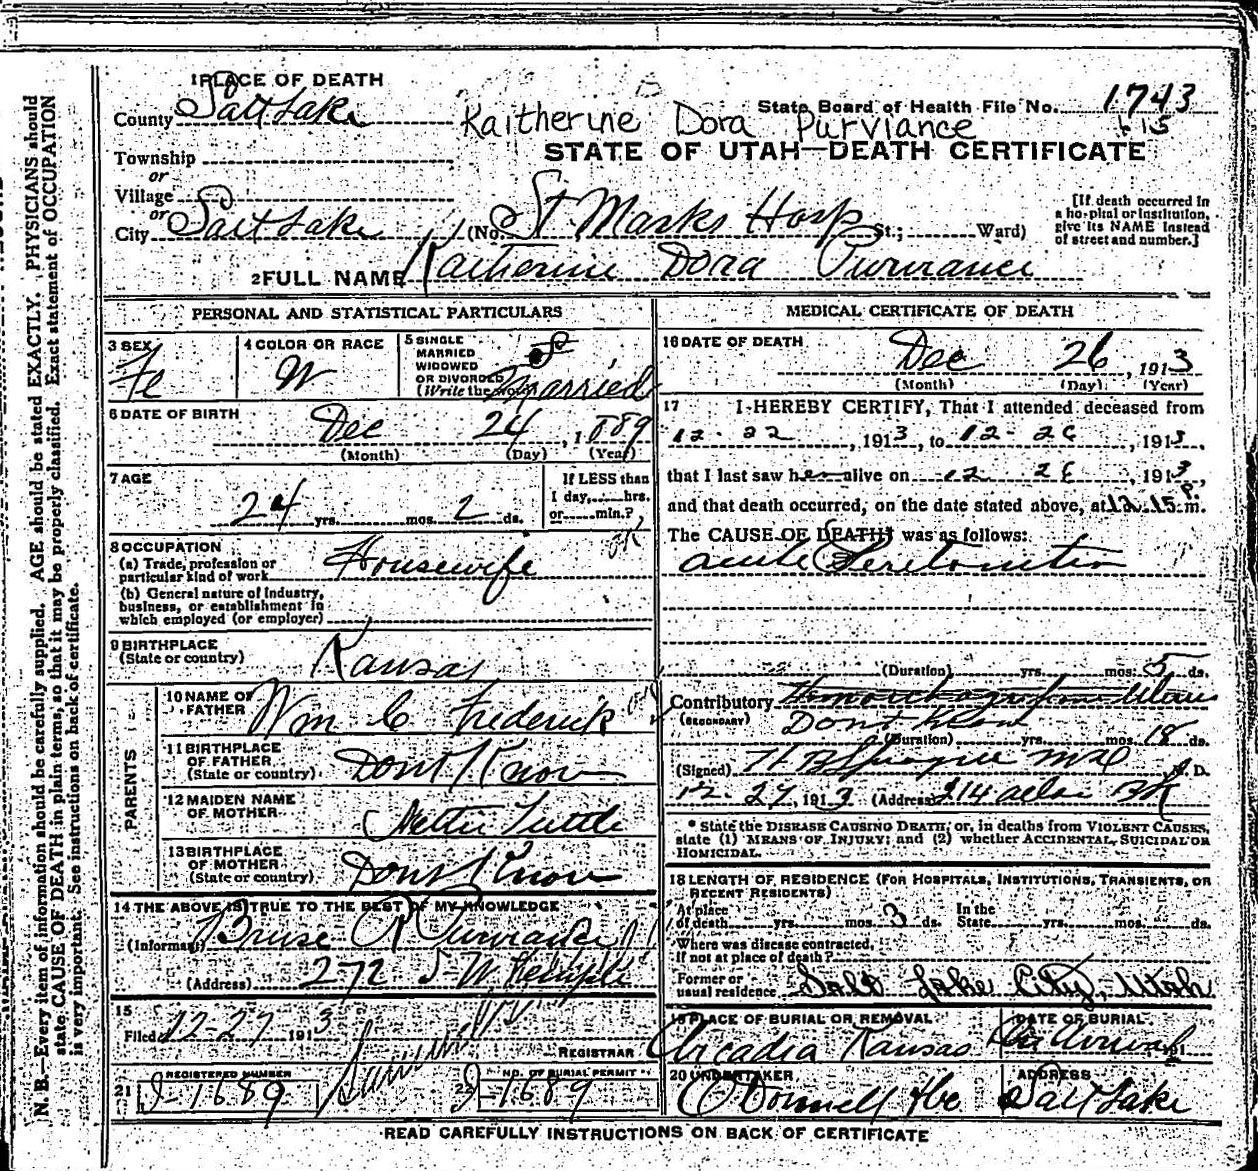 1 PLACE OF DEATH
County Salt Lake
State Board of Health File No. 1743
Kaitherine Dora Purviance
STATE OF UTAH—DEATH CERTIFICATE
Township
or
Village
or
City Salt Lake (No. St. Marks Hosp St.; Ward)
[If death occurred in a hospital or institution, give its NAME instead of street and number.]
2 FULL NAME Katherine Dora Purviance
PERSONAL AND STATISTICAL PARTICULARS
3 SEX Fe
4 COLOR OR RACE W
5 SINGLE MARRIED WIDOWED OR DIVORCED (Write the word) Married
6 DATE OF BIRTH Dec 24, 1889
(Month) (Day) (Year)
7 AGE 24 yrs. mos. 2 ds.
If LESS than 1 day, hrs. or min.?
8 OCCUPATION
(a) Trade, profession or particular kind of work Housewife
(b) General nature of Industry, business, or establishment in which employed (or employer)
9 BIRTHPLACE
(State or country) Kansas
PARENTS
10 NAME OF FATHER Wm C Frederick
11 BIRTHPLACE OF FATHER (State or country) Dont Know
12 MAIDEN NAME OF MOTHER Nettie Tuttle
13 BIRTHPLACE OF MOTHER (State or country) Dont Know
14 THE ABOVE IS TRUE TO THE BEST OF MY KNOWLEDGE
(Informant) Bruse R Purviance
(Address) 272 S W Temple
15
Filed 12-27 1913
REGISTRAR
21 REGISTERED NUMBER 1689
22 NO. OF BURIAL PERMIT 1689
MEDICAL CERTIFICATE OF DEATH
16 DATE OF DEATH Dec 26, 1913
(Month) (Day) (Year)
17 I HEREBY CERTIFY, That I attended deceased from
12-22, 1913, to 12-26, 1913,
that I last saw her alive on 12 26, 1913,
and that death occurred, on the date stated above, at 12.15 P. m.
The CAUSE OF DEATH* was as follows:
acute Peritonitis
(Duration) yrs. mos. 5 ds.
Contributory
(SECONDARY) Dont Know
(Duration) yrs. mos. 18 ds.
(Signed) H B Sprague MD M. D.
12-27, 1913 (Address) 214
* State the DISEASE CAUSING DEATH, or, in deaths from VIOLENT CAUSES, state (1) MEANS OF INJURY; and (2) whether ACCIDENTAL, SUICIDAL OR HOMICIDAL.
18 LENGTH OF RESIDENCE (FOR HOSPITALS, INSTITUTIONS, TRANSIENTS, OR RECENT RESIDENTS)
At place of death yrs. mos. 3 ds. In the State yrs. mos. ds.
Where was disease contracted, If not at place of death?
Former or usual residence Salt Lake City, Utah
19 PLACE OF BURIAL OR REMOVAL Arcadia Kansas
DATE OF BURIAL On Arrival 191
20 UNDERTAKER O'Donnell &Co
ADDRESS Salt Lake
READ CAREFULLY INSTRUCTIONS ON BACK OF CERTIFICATE
N. B.—Every item of information should be carefully supplied. AGE should be stated EXACTLY. PHYSICIANS should
state CAUSE OF DEATH in plain terms, so that it may be properly classified. Exact statement of OCCUPATION
is very important. See instructions on back of certificate.